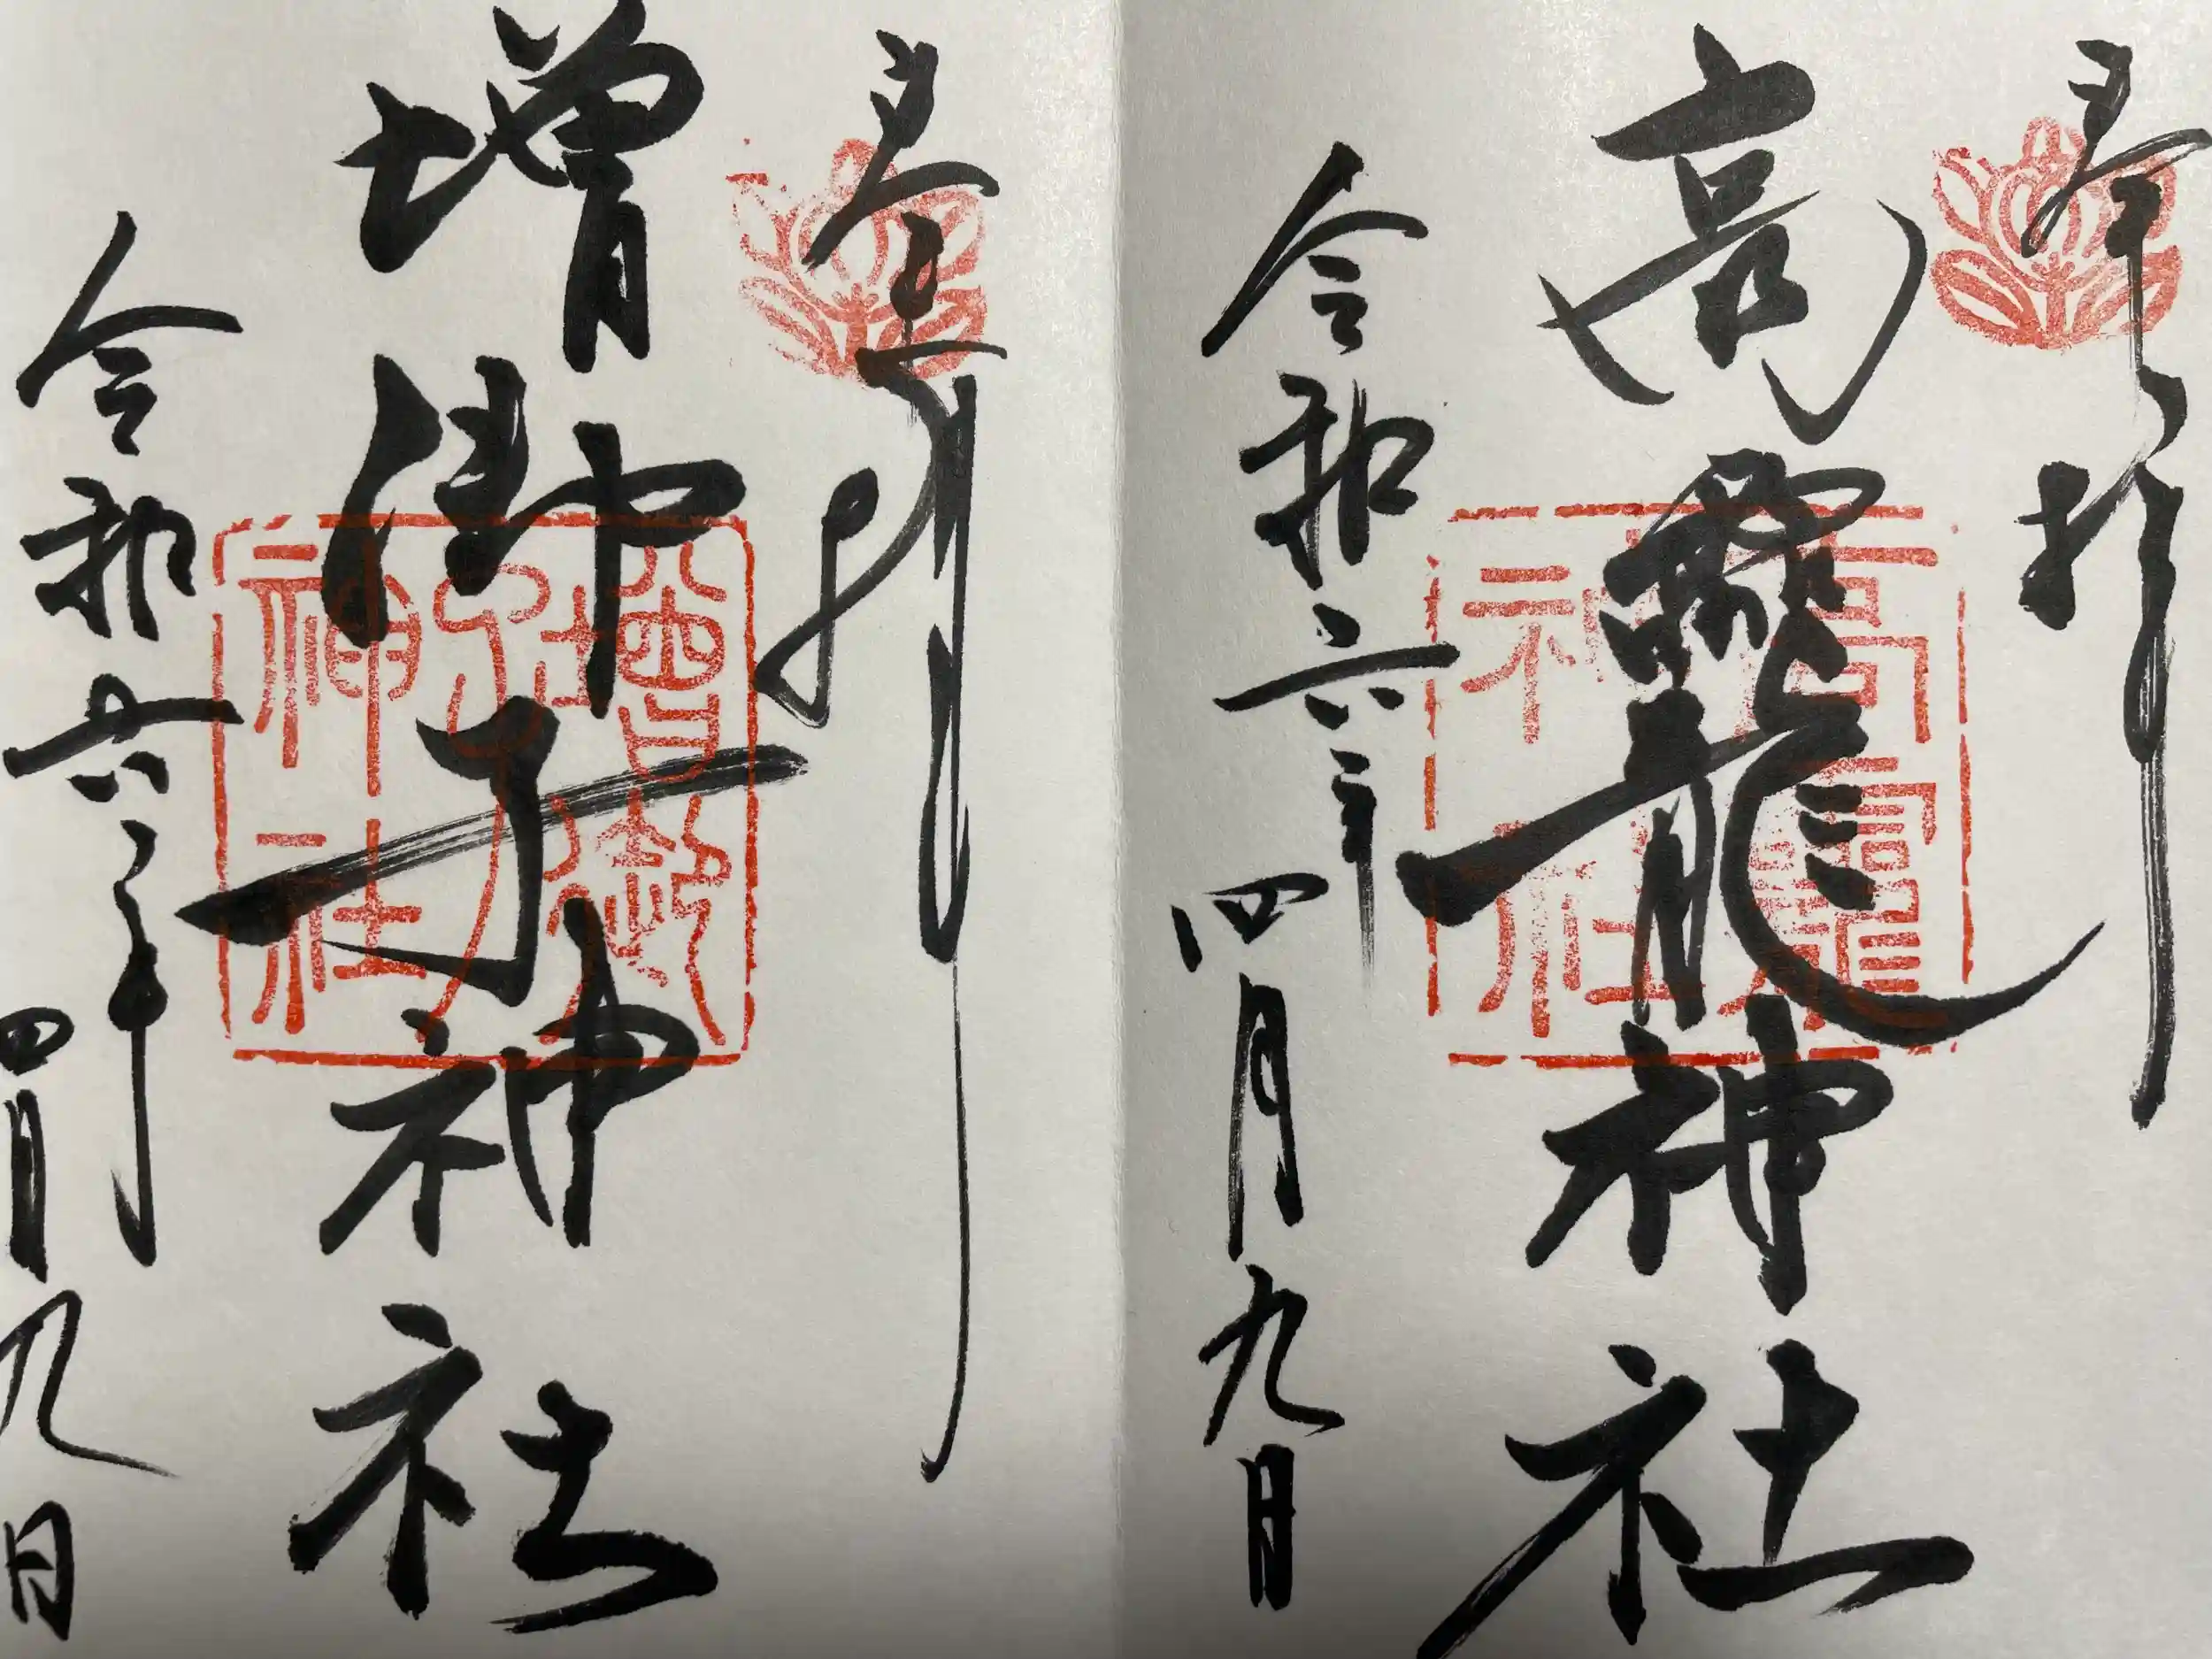 奉拝
高龗神社
神社
高龗
令和六年
四月九日
奉拝
増御子神社
増御
子
神社
令和六年
四月九日